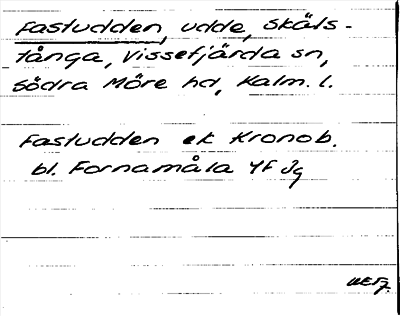 Fastudden, udde, Skäls-
tånga, Vissefjärda sn,
Södra Möre hd, Kalm. l.
Fastudden ek Kronob.
bl. Fornamåla 4F Jg